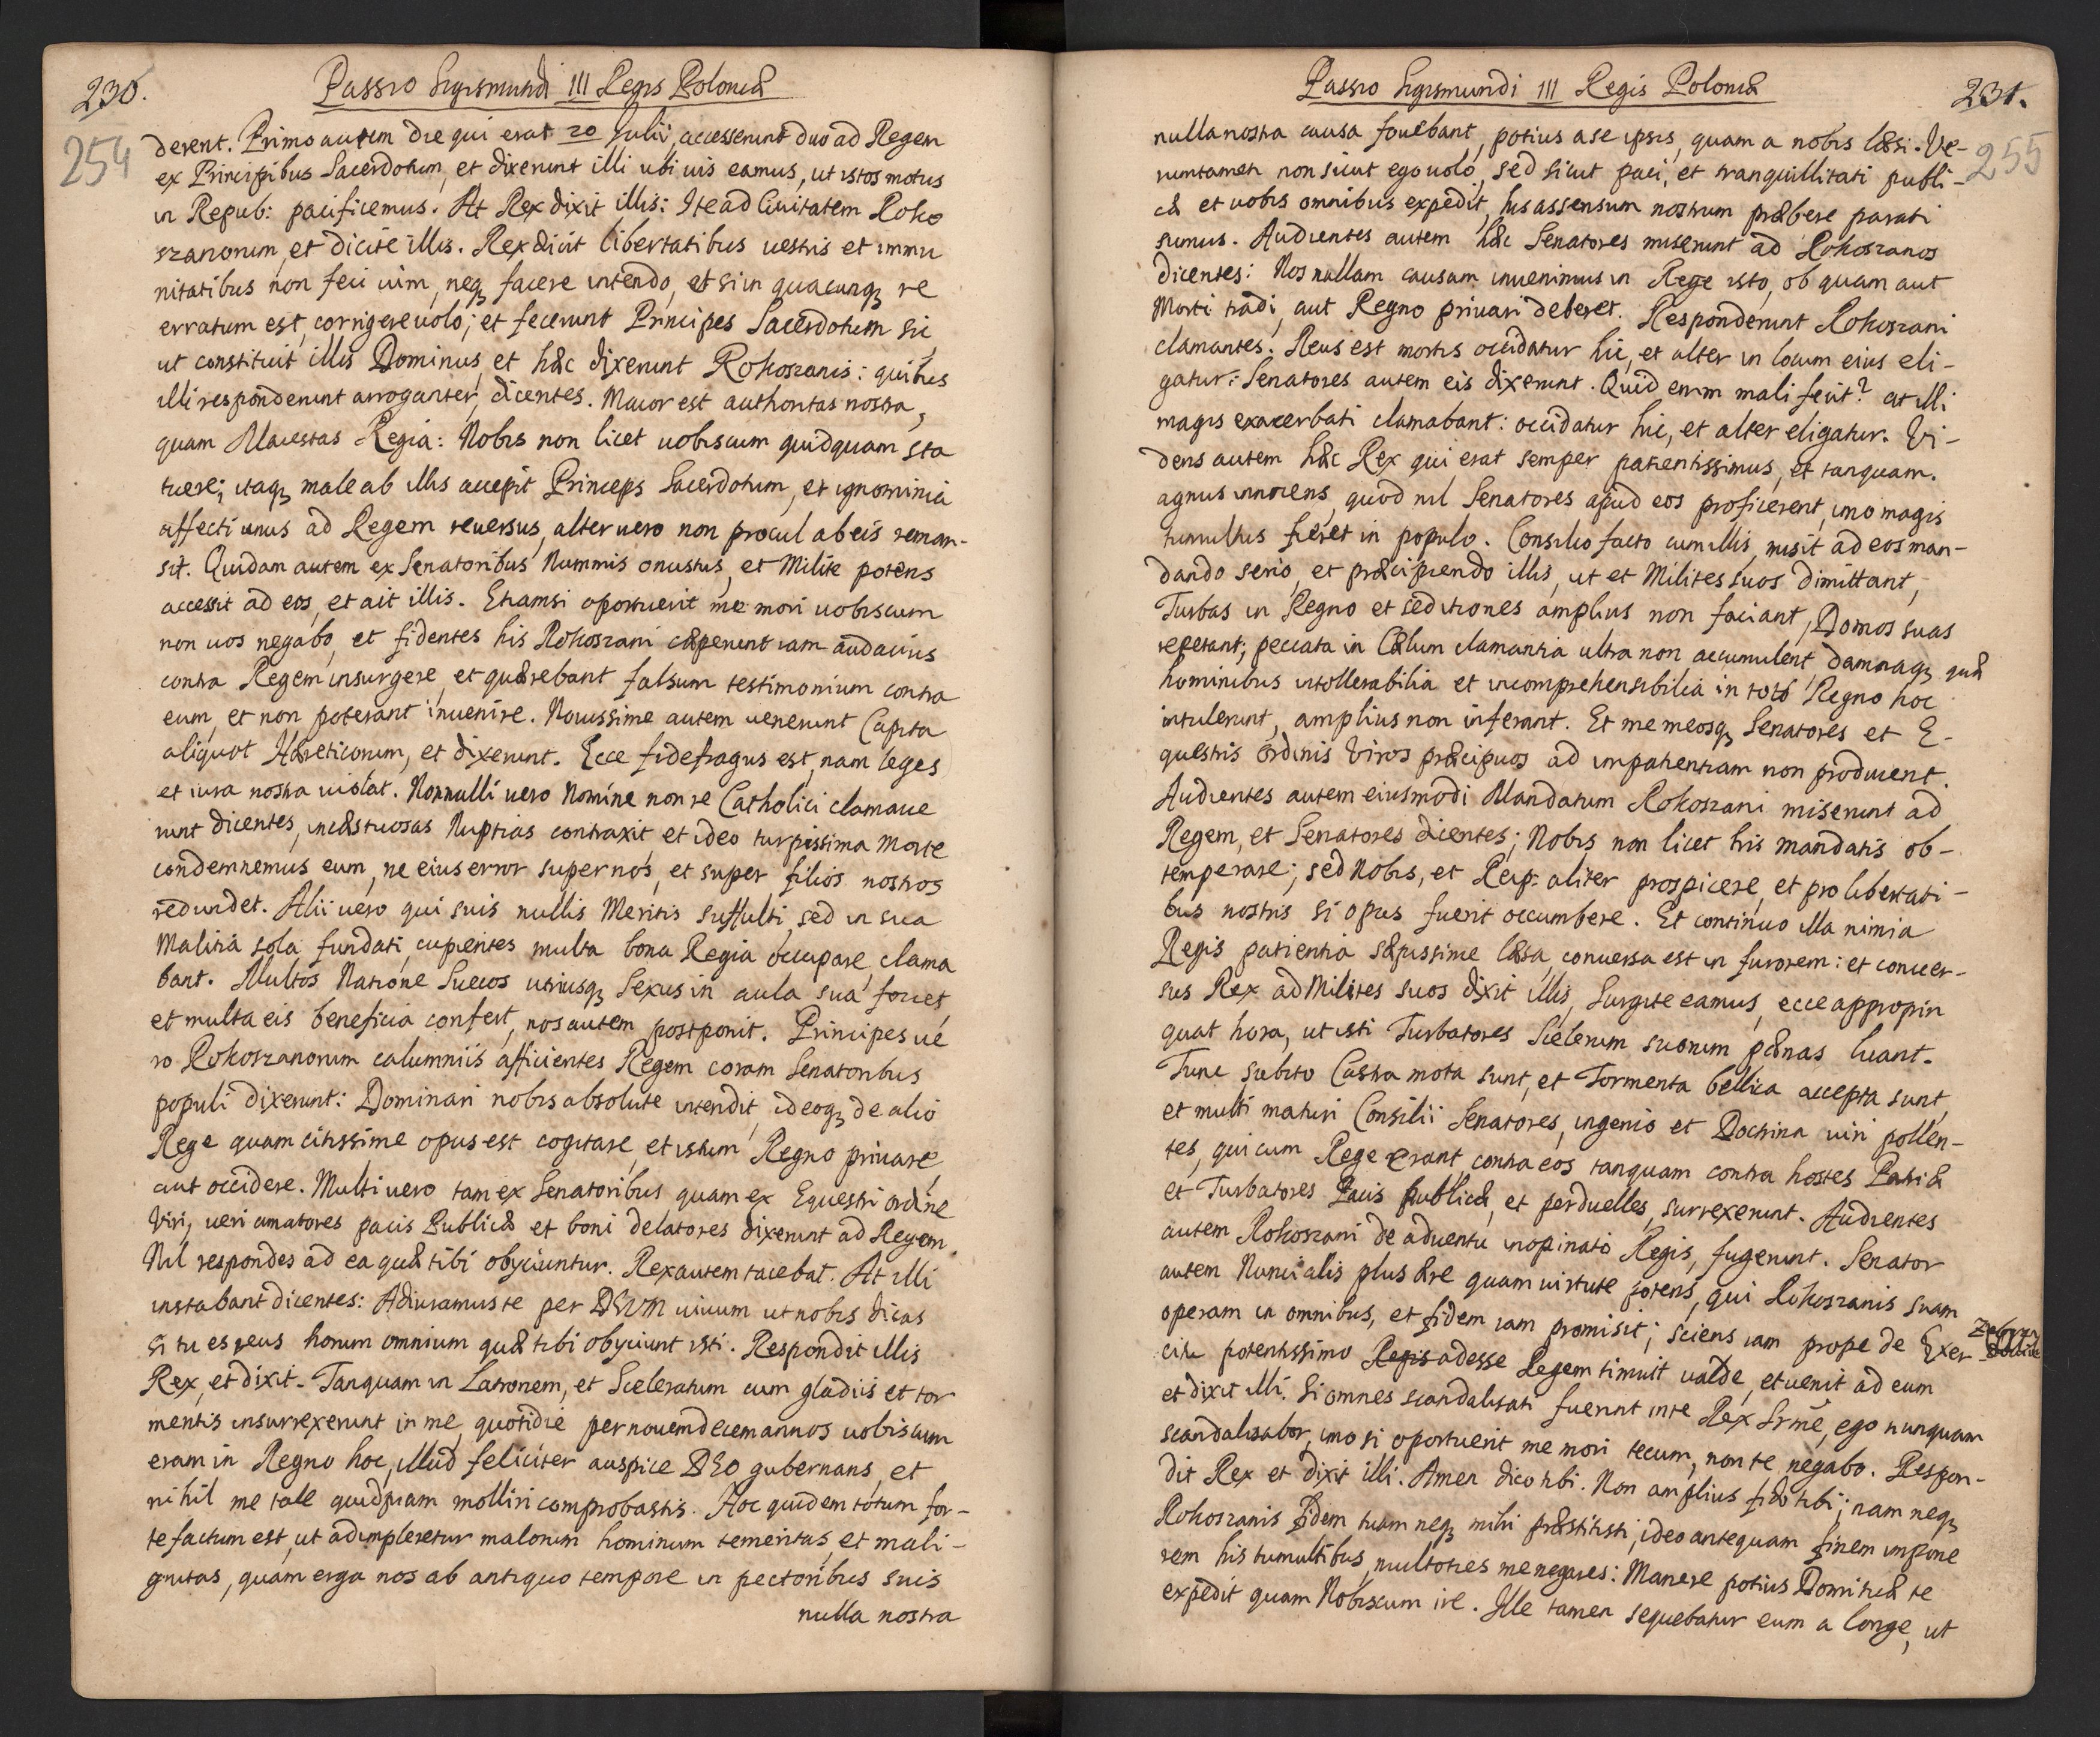 230.
Passio Sigismundi III Regis Poloniæ
254
derent. Primo autem die qui erat 20 Julii, accesserunt duo ad Regem
ex Principibus Sacerdotum, et dixerunt illi ubi uis eamus, ut istos motus
in Repub: pacificemus. At Rex dixit illis: Ite ad Ciuitatem Roko
szanorum, et dicite illis. Rex dicit libertatibus uestris et immu
nitatibus non feci uim, neqꝫ facere intendo, et si in quacunqꝫ re
erratum est, corrigere uolo; et fecerunt Principes Sacerdotum sic
ut constituit illis Dominus, et hæc dixerunt Rokoszanis: quibus
illi responderunt arroganter, dicentes. Maior est authoritas nostra,
quam Maiestas Regia: Nobis non licet uobiscum quidquam sta
tuere; itaqꝫ male ab illis accepit Princeps Sacerdotum, et ignominia
affecti unus ad Regem reuersus, alter uero non procul ab eis reman-
sit. Quidam autem ex Senatoribus Nummis onustus, et Milite potens
accessit ad eos, et ait illis. Etiamsi oportuerit me mori uobiscum
non uos negabo, et fidentes his Rokoszani cæperunt iam audacius
contra Regem insurgere, et quærebant falsum testimonium contra
eum, et non poterant inuenire. Nouissime autem uenerunt Capita
aliquot Hæreticorum, et dixerunt. Ecce fidefragus est, nam leges
et iura nostra uiolat. Nonnulli uero Nomine non re Catholici clamaue
runt dicentes, incæstuosas Nuptias contraxit, et ideo turpissima Morte
condemnemus eum, ne eius error super nos, et super filios nostros
redundet. Alii uero qui suis nullis Meritis suffulti, sed in sua
Malitia sola fundati, cupientes multa bona Regia occupare, clama
bant. Multos Natione Suecos utriusqꝫ Sexus in aula sua fouet,
et multa eis beneficia confert, nos autem postponit. Principes ue
ro Rokoszanorum calumniis afficientes Regem coram Senatoribus
populi dixerunt: Dominari nobis absolute intendit, ideoqꝫ de alio
Rege quam citissime opus est cogitare, et istum Regno priuare,
aut occidere. Multi uero tam ex Senatoribus quam ex Equestri ordine
Viri, ueri amatores pacis Publicæ et boni delatores dixerunt ad Regem.
Nil respondes ad ea quæ tibi obyciuntur. Rex autem tacebat. At illi
instabant dicentes: Adiuramus te per DEVM uiuum ut nobis dicas
si tu es reus horum omnium quæ tibi obyciunt isti. Respondit illis
Rex, et dixit. Tanquam in Latronem, et Sceleratum cum gladiis et tor
mentis insurrexerunt in me, quotidie per nouemdecem annos uobiscum
eram in Regno hoc, illud feliciter auspice DEO gubernans, et
nihil me tale quidquam molliri comprobastis. Hoc quidem totum for-
te factum est, ut adimpleretur malorum hominum temeritas, et mali-
gnitas, quam erga nos ab antiquo tempore in pectoribus suis
nulla nostra
Passio Sigismundi III Regis Poloniæ
231.
255
nulla nostra causa fouebant, potius a se ipsis, quam a nobis læsi. Ve-
rumtamen non sicut ego uolo, sed sicut paci, et tranquillitati publi-
cæ et uobis omnibus expedit, his assensum nostrum præbere parati
sumus. Audientes autem hæc Senatores miserunt ad Rokoszanos
dicentes: Nos nullam causam inuenimus in Rege isto, ob quam aut
Morti tradi, aut Regno priuari deberet. Responderunt Rokoszani
clamantes. Reus est mortis occidatur hic, et alter in locum eius eli-
gatur: Senatores autem eis dixerunt. Quid enim mali fecit? at illi
magis exacerbati clamabant: occidatur hic, et alter eligatur. Vi-
dens autem hæc Rex qui erat semper patientissimus, et tanquam
agnus innocens, quod nil Senatores apud eos proficerent, imo magis
tumultus fieret in populo. Consilio facto cum illis, misit ad eos man-
dando serio, et præcipiendo illis, ut et Milites suos dimittant,
Turbas in Regno et seditiones amplius non faciant, Domos suas
repetant; peccata in Cælum clamantia ultra non accumulent, damnaqꝫ quæ
hominibus intollerabilia et incomprehensibilia in toto Regno hoc
intulerunt, amplius non inferant. Et me meosqꝫ Senatores et E-
questris ordinis Viros præcipuos ad impatientiam non producent.
Audientes autem eiusmodi Mandatum Rokoszani miserunt ad
Regem, et Senatores dicentes; Nobis non licet his mandatis ob-
temperare; sed Nobis, et Reip: aliter prospicere, et pro libertati-
bus nostris si opus fuerit occumbere. Et continuo illa nimia
Regis patientia sæpissime læsa, conuersa est in furorem: et conuer-
sus Rex ad Milites suos dixit illis, Surgite eamus, ecce appropin
quat hora, ut isti Turbatores Scelerum suorum pænas luant.
Tunc subito Castra mota sunt, et Tormenta bellica accepta sunt,
et multi maturi Consilii Senatores, ingenio et Doctrina uiri pollen-
tes, qui cum Rege erant, contra eos tanquam contra hostes Patriæ
et Turbatores Pacis publicæ, et perduelles, surrexerunt. Audientes
autem Rokoszani de aduentu inopinato Regis, fugerunt. Senator
autem Nuncialis plus ære quam uirtute potens, qui Rokoszanis suam
operam in omnibus, et fidem iam promisit; sciens iam prope de Exer-
citu potentissimo Regis adesse Regem timuit ualde, et uenit ad eum
et dixit illi. Si omnes scandalisati fuerint in te Rex Srme, ego nunquam
scandalisabor, imo si oportuerit me mori tecum, non te negabo. Respon-
dit Rex et dixit illi. Amen dico tibi. Non amplius fido tibi; nam neqꝫ
Rokoszanis fidem tuam neqꝫ mihi præstitisti, ideo antequam finem impone
rem his tumultibus, multoties me negares: Manere potius Domi tuæ te
expedit quam Nobiscum ire. Ille tamen sequebatur eum a longe, ut